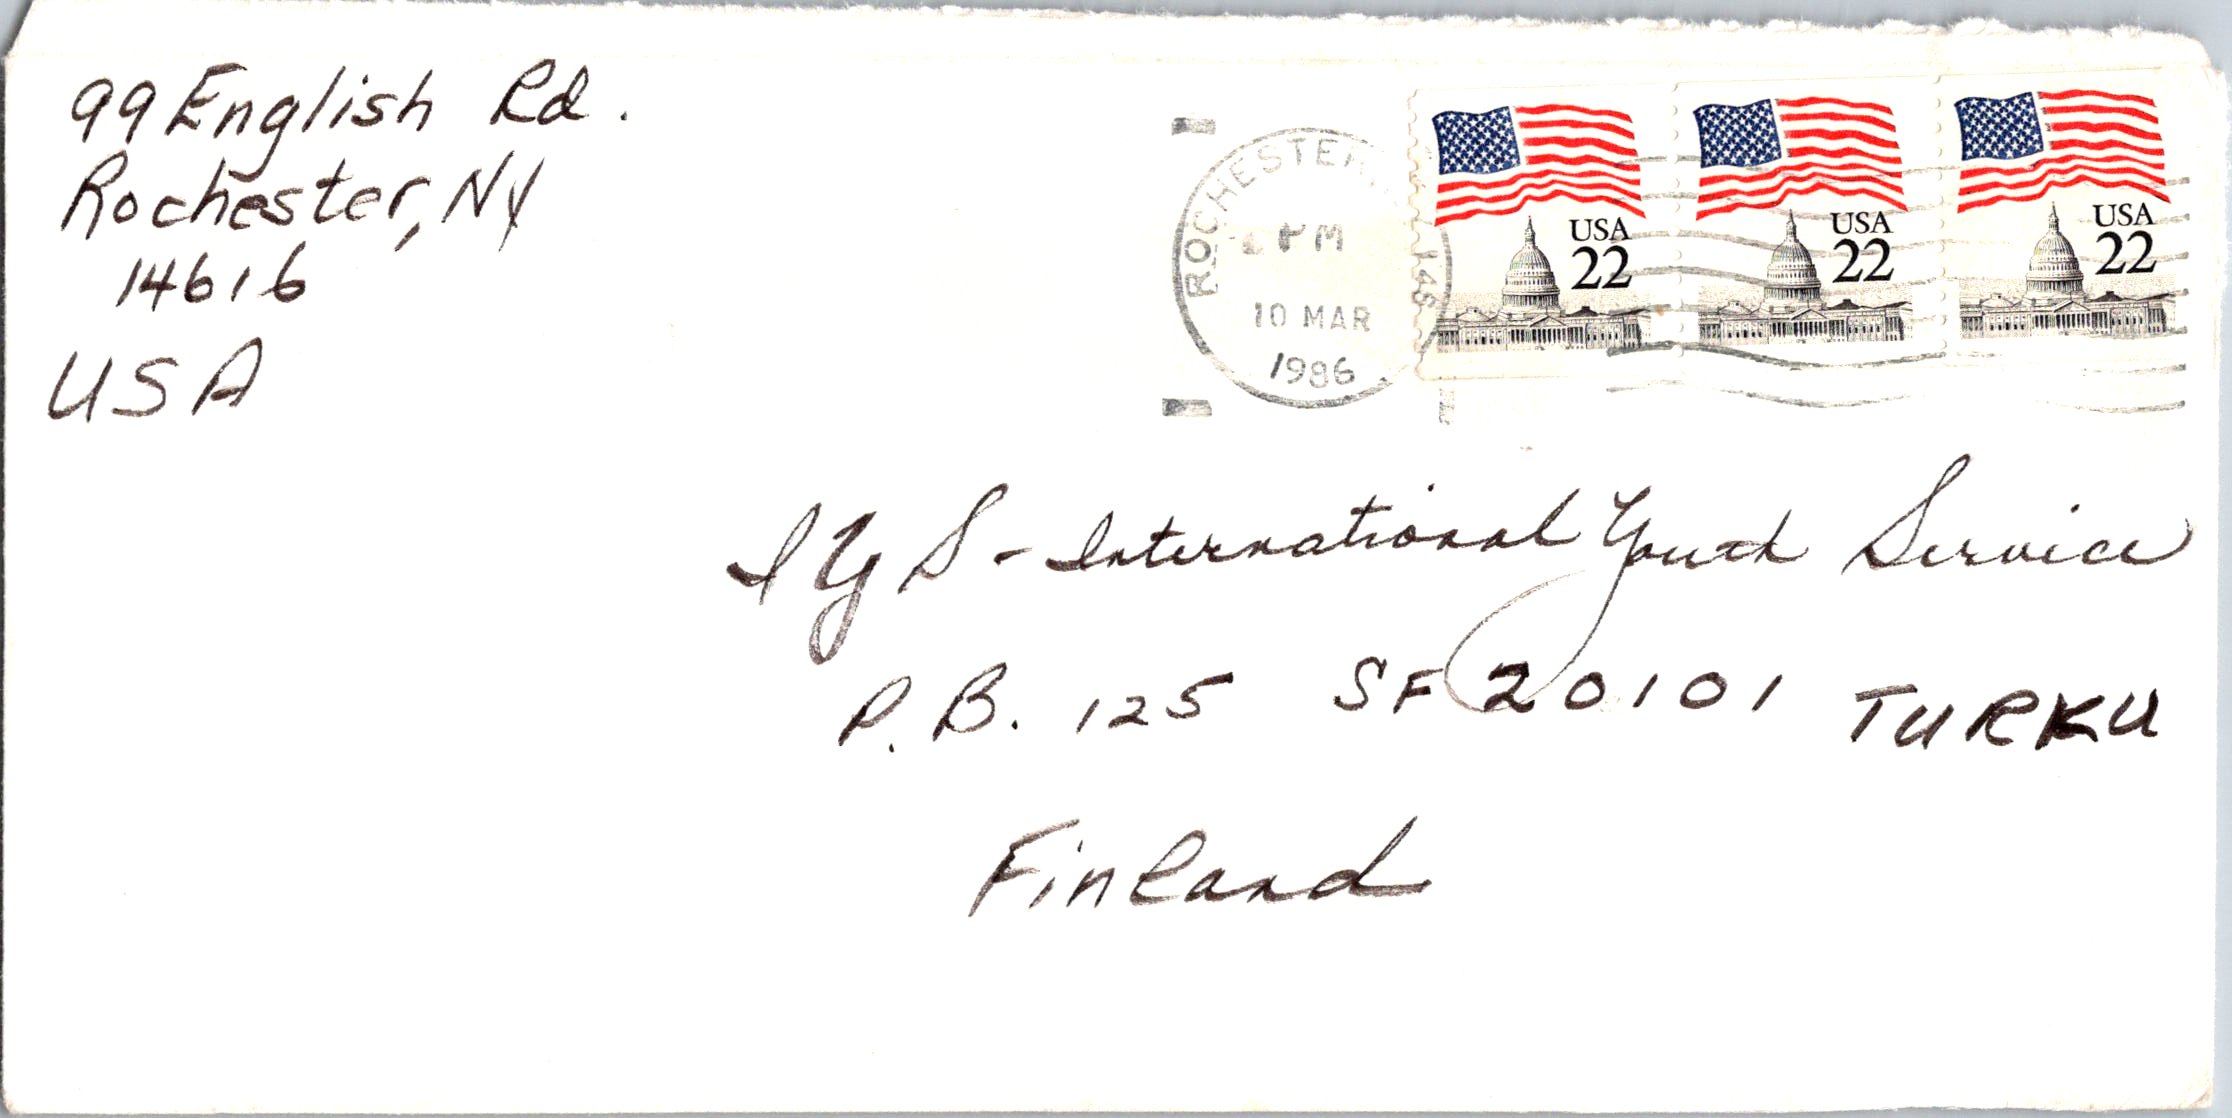 99 English Rd.
Rochester, NY
14616
USA
ROCHESTER
PM
10 MAR
1986
USA
22
USA
22
USA
22
IYS - International Youth Service
P.B. 125 SF 20101 TURKU
Finland